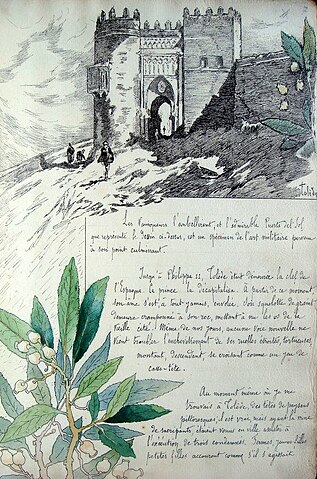 Tolède
Les Tamoyeurs l'embellirent, et l'admirable Puerta del Sol
que représente le dessin ci-dessus, est un spécimen de l'art militaire parvenu
à son point culminant.
Jusqu'à Philippe II, Tolède était dénommée la clef de
l'Espagne. Le prince la décapitalisa. À partir de ce moment,
son âme s'est, à tout jamais, envolée. Son squelette de granit
demeure cramponné à son roc, mettant à nu les os de la
vieille cité. Même de nos jours, aucune voie nouvelle ne
vient troubler l'enchevêtrement de ses ruelles étroites, tortueuses,
montant, descendant, se croisant comme un jeu de
casse-tête.
Au moment même où je me
trouvais à Tolède, des têtes de paysans
pittoresques, il est vrai, mais ayant l'air
de sacripants, étaient venus en ville assister à
l'exécution de trois condamnés. Femmes, jeunes filles
petites filles accourent comme s'il s'agissait